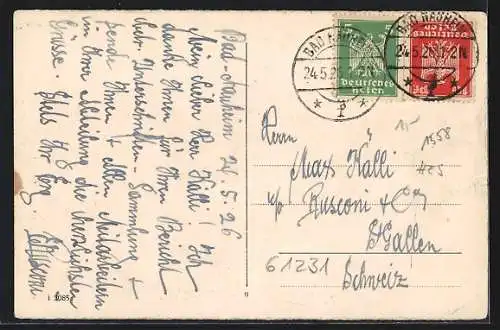 Bad-Nauheim 24.5.26
Mein lieber Herr Källi! Ich
danke Ihnen für Ihren Bericht
Unterschriften-Sammlung +
Ihnen + allen Mitarbeitern
in Ihrer Abteilung die herzlichsten
Grüsse. Stets Ihr
BAD NAUHEIM
24.5.26
Deutsches
Reich
BAD NAUHEIM
24.5.26
1.-
1558
#25
Herrn
Max Källi
c/o Rusconi & Co
St Gallen
Schweiz
61231